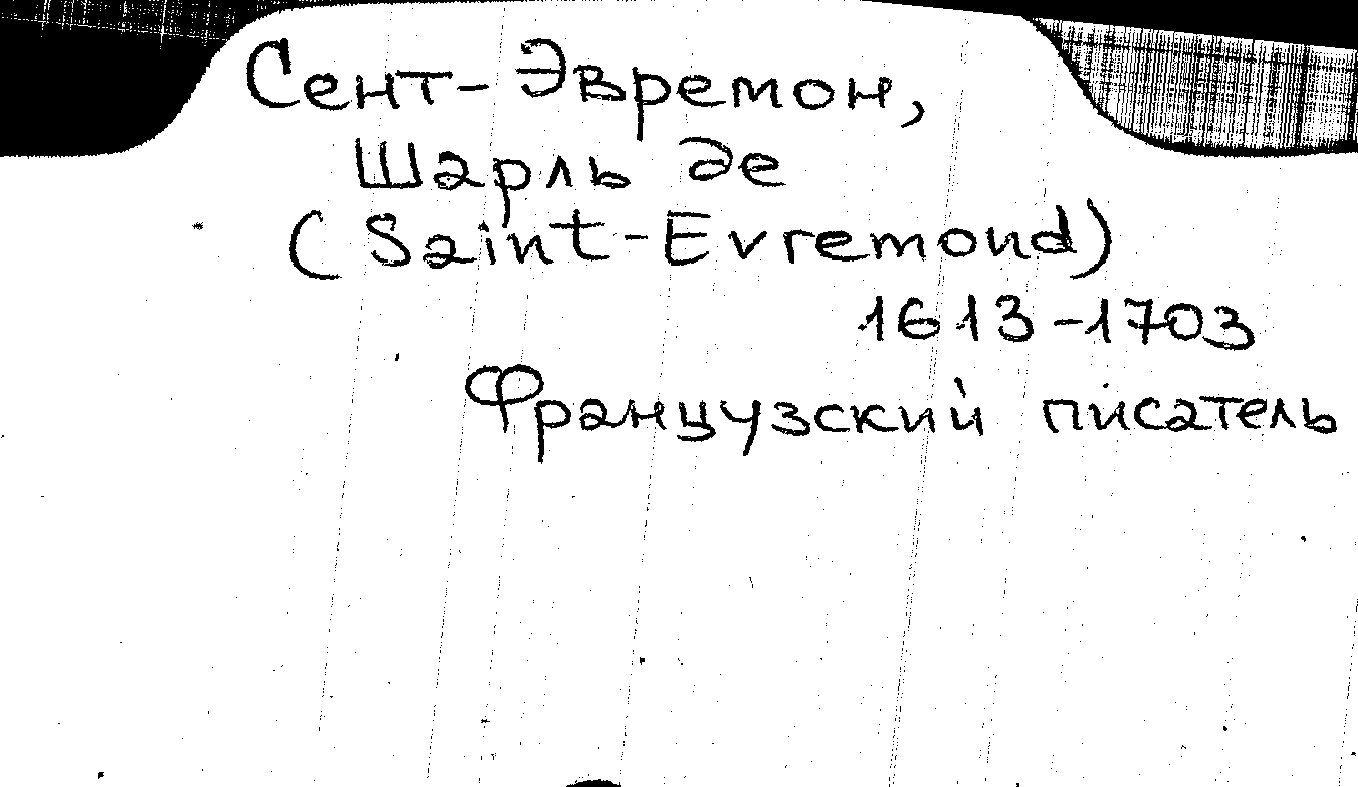 Сент-Эвремон,
Шарль де
(Saint-Evremond)
1613-1703
Французский писатель